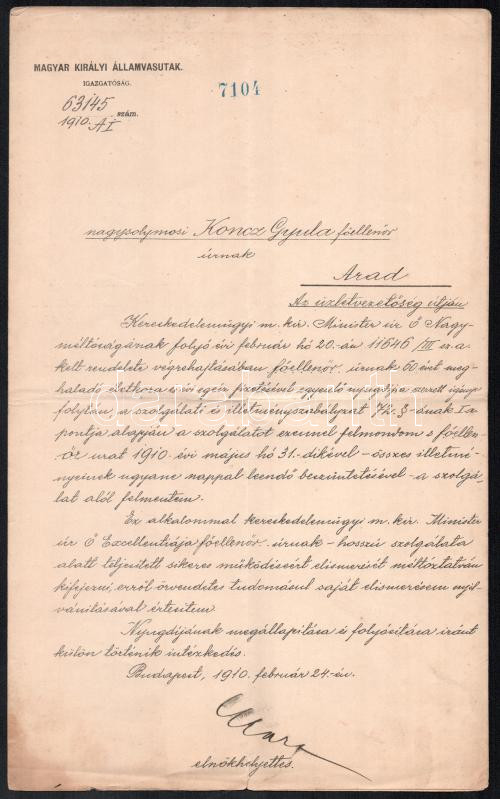 MAGYAR KIRÁLYI ÁLLAMVASUTAK.
IGAZGATÓSÁG.
7104
63145 szám.
1910. A I
nagysolymosi Koncz Gyula főellenőr
úrnak
Arad
Az üzletvezetőség útján
Kereskedelemügyi m. kir. Minister úr Ő Nagy-
méltóságának folyó évi február hó 20.-án 11646/III sz. a.
kelt rendelete végrehajtásában főellenőr úrnak 60 évet meg-
haladó életkora s évi egész fizetésével egyenlő nyugdíjra szerzett igénye
folytán, a szolgálati és illetményszabályzat 72. §-ának 1 a
pontja alapján a szolgálatot ezennel felmondom s főellen-
őr urat 1910. évi május hó 31.-dikével - összes illetmé-
nyeinek ugyane nappal leendő beszüntetésével - a szolgá-
lat alól felmentem.
Ez alkalommal kereskedelemügyi m. kir. Minister
úr Ő Excellentiája főellenőr úrnak - hosszú szolgálata
alatt teljesített sikeres működéséért elismerését méltóztatván
kifejezni, erről örvendetes tudomásul saját elismerésem nyil-
vánításával értesítem.
Nyugdíjának megállapítása és folyósítása iránt
külön történik intézkedés.
Budapest, 1910. február 24.-én.
elnökhelyettes.